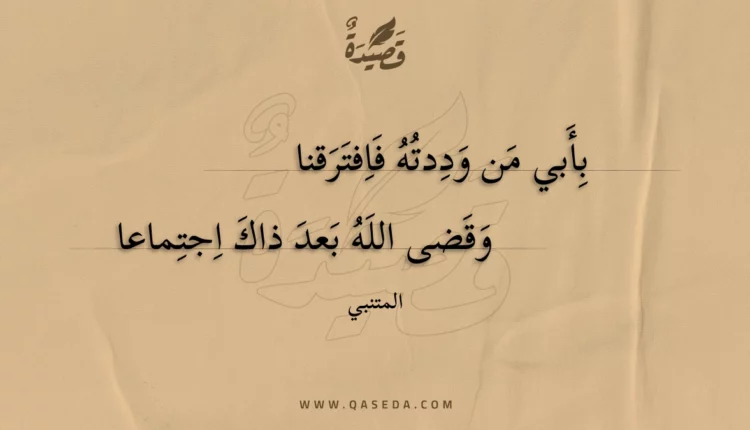 قَصِيدَةٌ
بِأَبي مَن وَدِدتُهُ فَاِفتَرَقنا
وَقَضى اللَهُ بَعدَ ذاكَ اِجتِماعا
المتنبي
WWW.QASEDA.COM